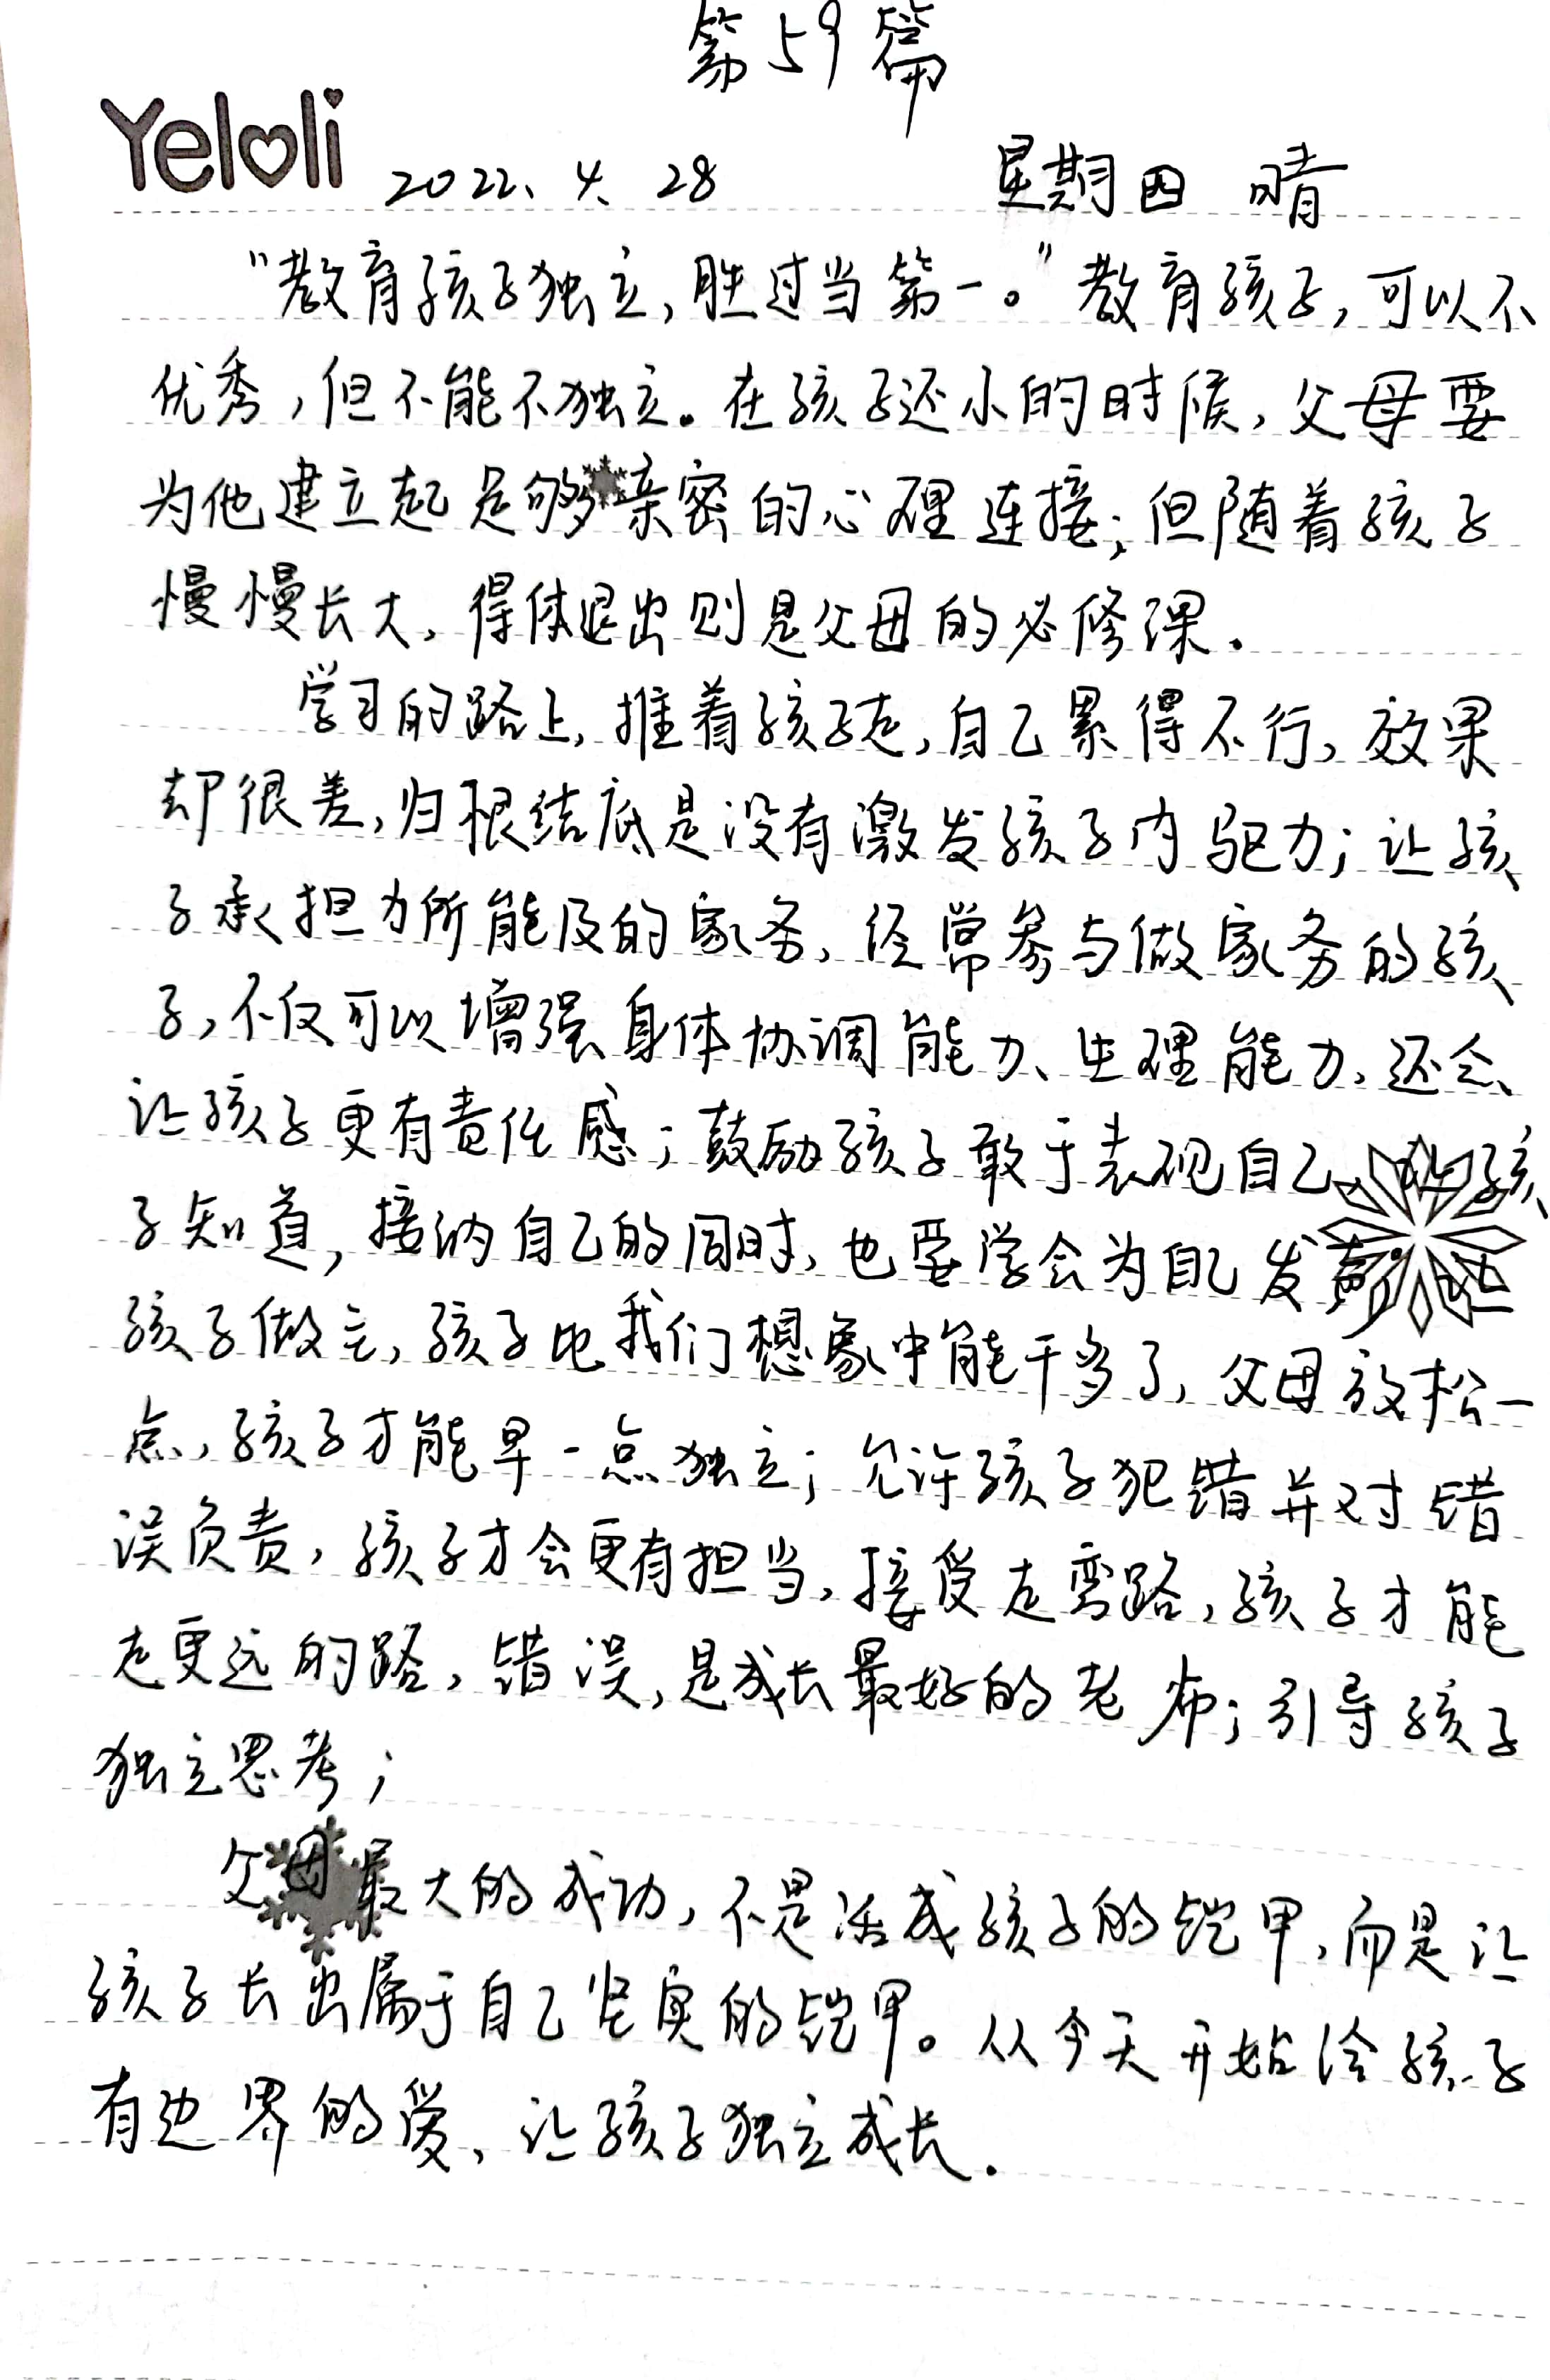 第59篇
Yeloli
2022、4、28 星期四 晴
“教育孩子独立,胜过当第一。”教育孩子,可以不
优秀,但不能不独立。在孩子还小的时候,父母要
为他建立起足够亲密的心理连接;但随着孩子
慢慢长大,得体退出则是父母的必修课.
学习的路上,推着孩子走,自己累得不行,效果
却很差,归根结底是没有激发孩子内驱力;让孩
子承担力所能及的家务,经常参与做家务的孩
子,不仅可以增强身体协调能力、生理能力,还会
让孩子更有责任感;鼓励孩子敢于表现自己,让孩
子知道,接纳自己的同时,也要学会为自己发声;让
孩子做主,孩子比我们想象中能干多了,父母放松一
点,孩子才能早一点独立;允许孩子犯错并对错
误负责,孩子才会更有担当,接受走弯路,孩子才能
走更远的路,错误,是成长最好的老师;引导孩子
独立思考;
父母最大的成功,不是活成孩子的铠甲,而是让
孩子长出属于自己坚实的铠甲。从今天开始给孩子
有边界的爱、让孩子独立成长.